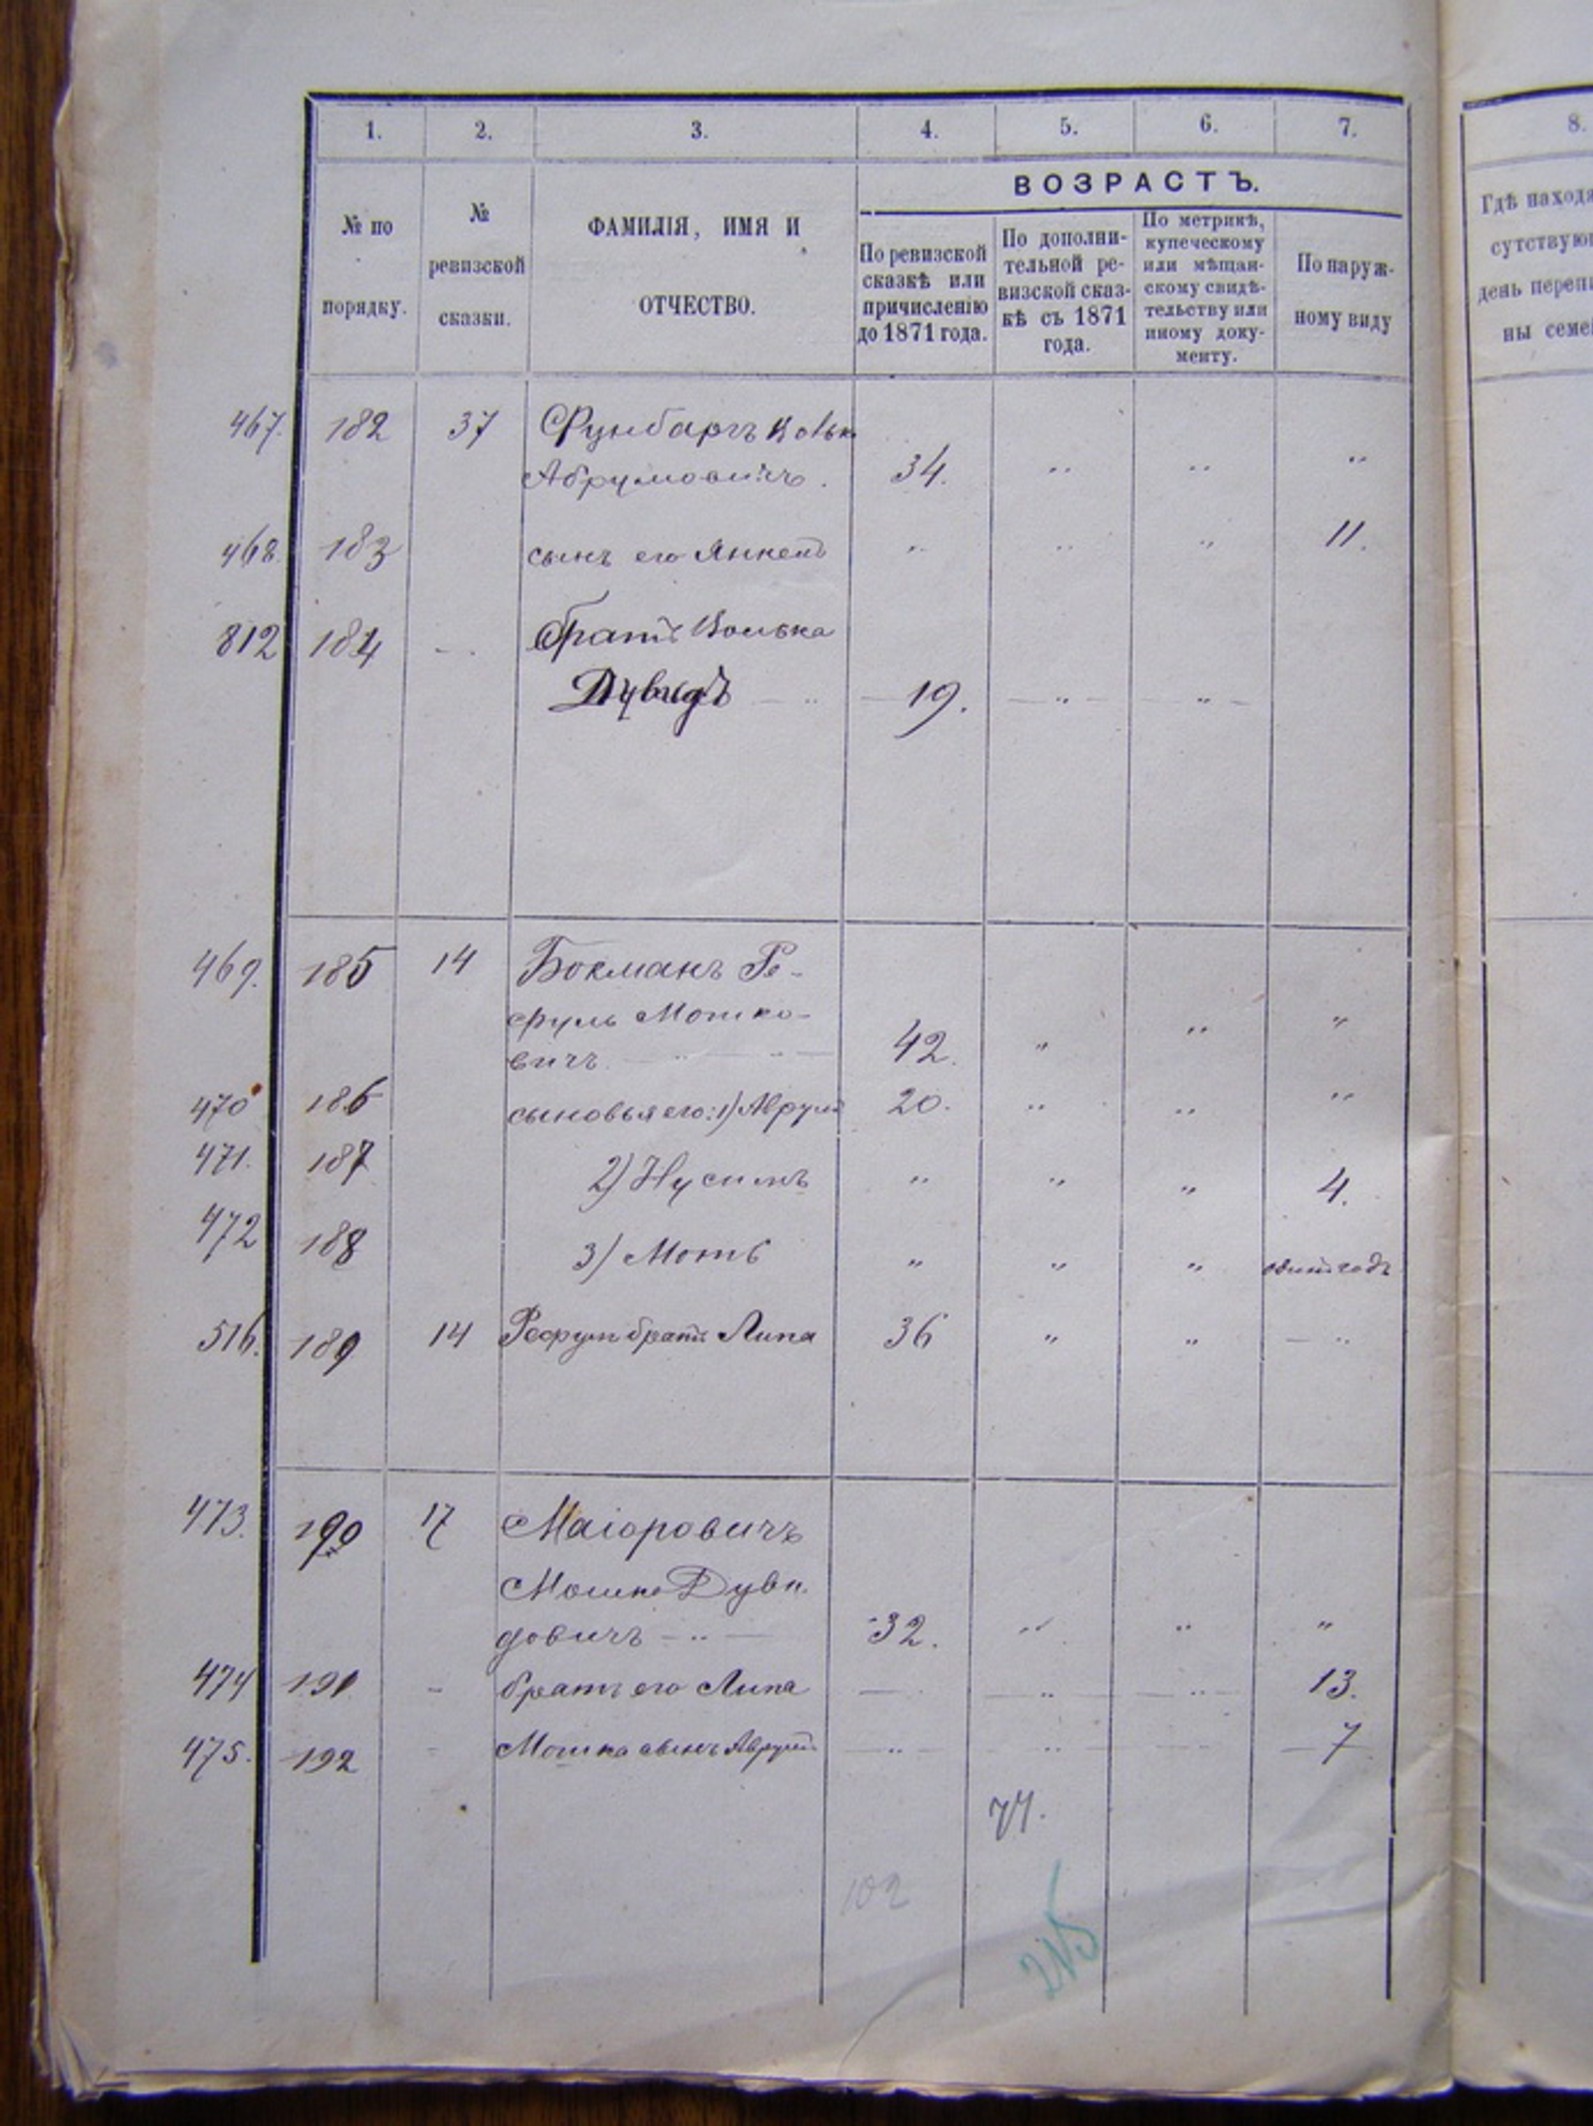 1. 2. 3. 4. 5. 6. 7. 8.
№ по
порядку.
№
ревизской
сказки.
ФАМИЛІЯ, ИМЯ И
ОТЧЕСТВО.
ВОЗРАСТЪ.
По ревизской
сказкѣ или
причисленію
до 1871 года.
По дополни-
тельной ре-
визской сказ-
кѣ съ 1871
года.
По метрикѣ,
купеческому
или мѣщан-
скому свидѣ-
тельству или
иному доку-
менту.
По наруж-
ному виду
Гдѣ находя
сутствую
день переп
ны семе
467. 182 37 Фунбаргъ Волько
Абрумовичъ. 34. " " "
468. 183 сынъ его Янкель " " " 11.
812 184 - . братъ Волька
Дувидъ — " — 19. — " — — " —
469. 185 14 Бокманъ Ре-
фуль Мошко-
вичъ. — " — " — 42. " " "
470 186 сыновья его: 1) Аврумъ 20. " " "
471. 187 2) Нусинъ " " " 4.
472 188 3) Моть " " " одинъ годъ
516. 189 14 Рефули братъ Липа 36 " " — "
473. 190 17 Маіоровичъ
Мошко Дуви-
довичъ — " — 32. " " "
474 191 - братъ его Липа — — " — — " — 13.
475. 192 - Мошка сынъ Аврумъ — " — — " — — 7
77.
102